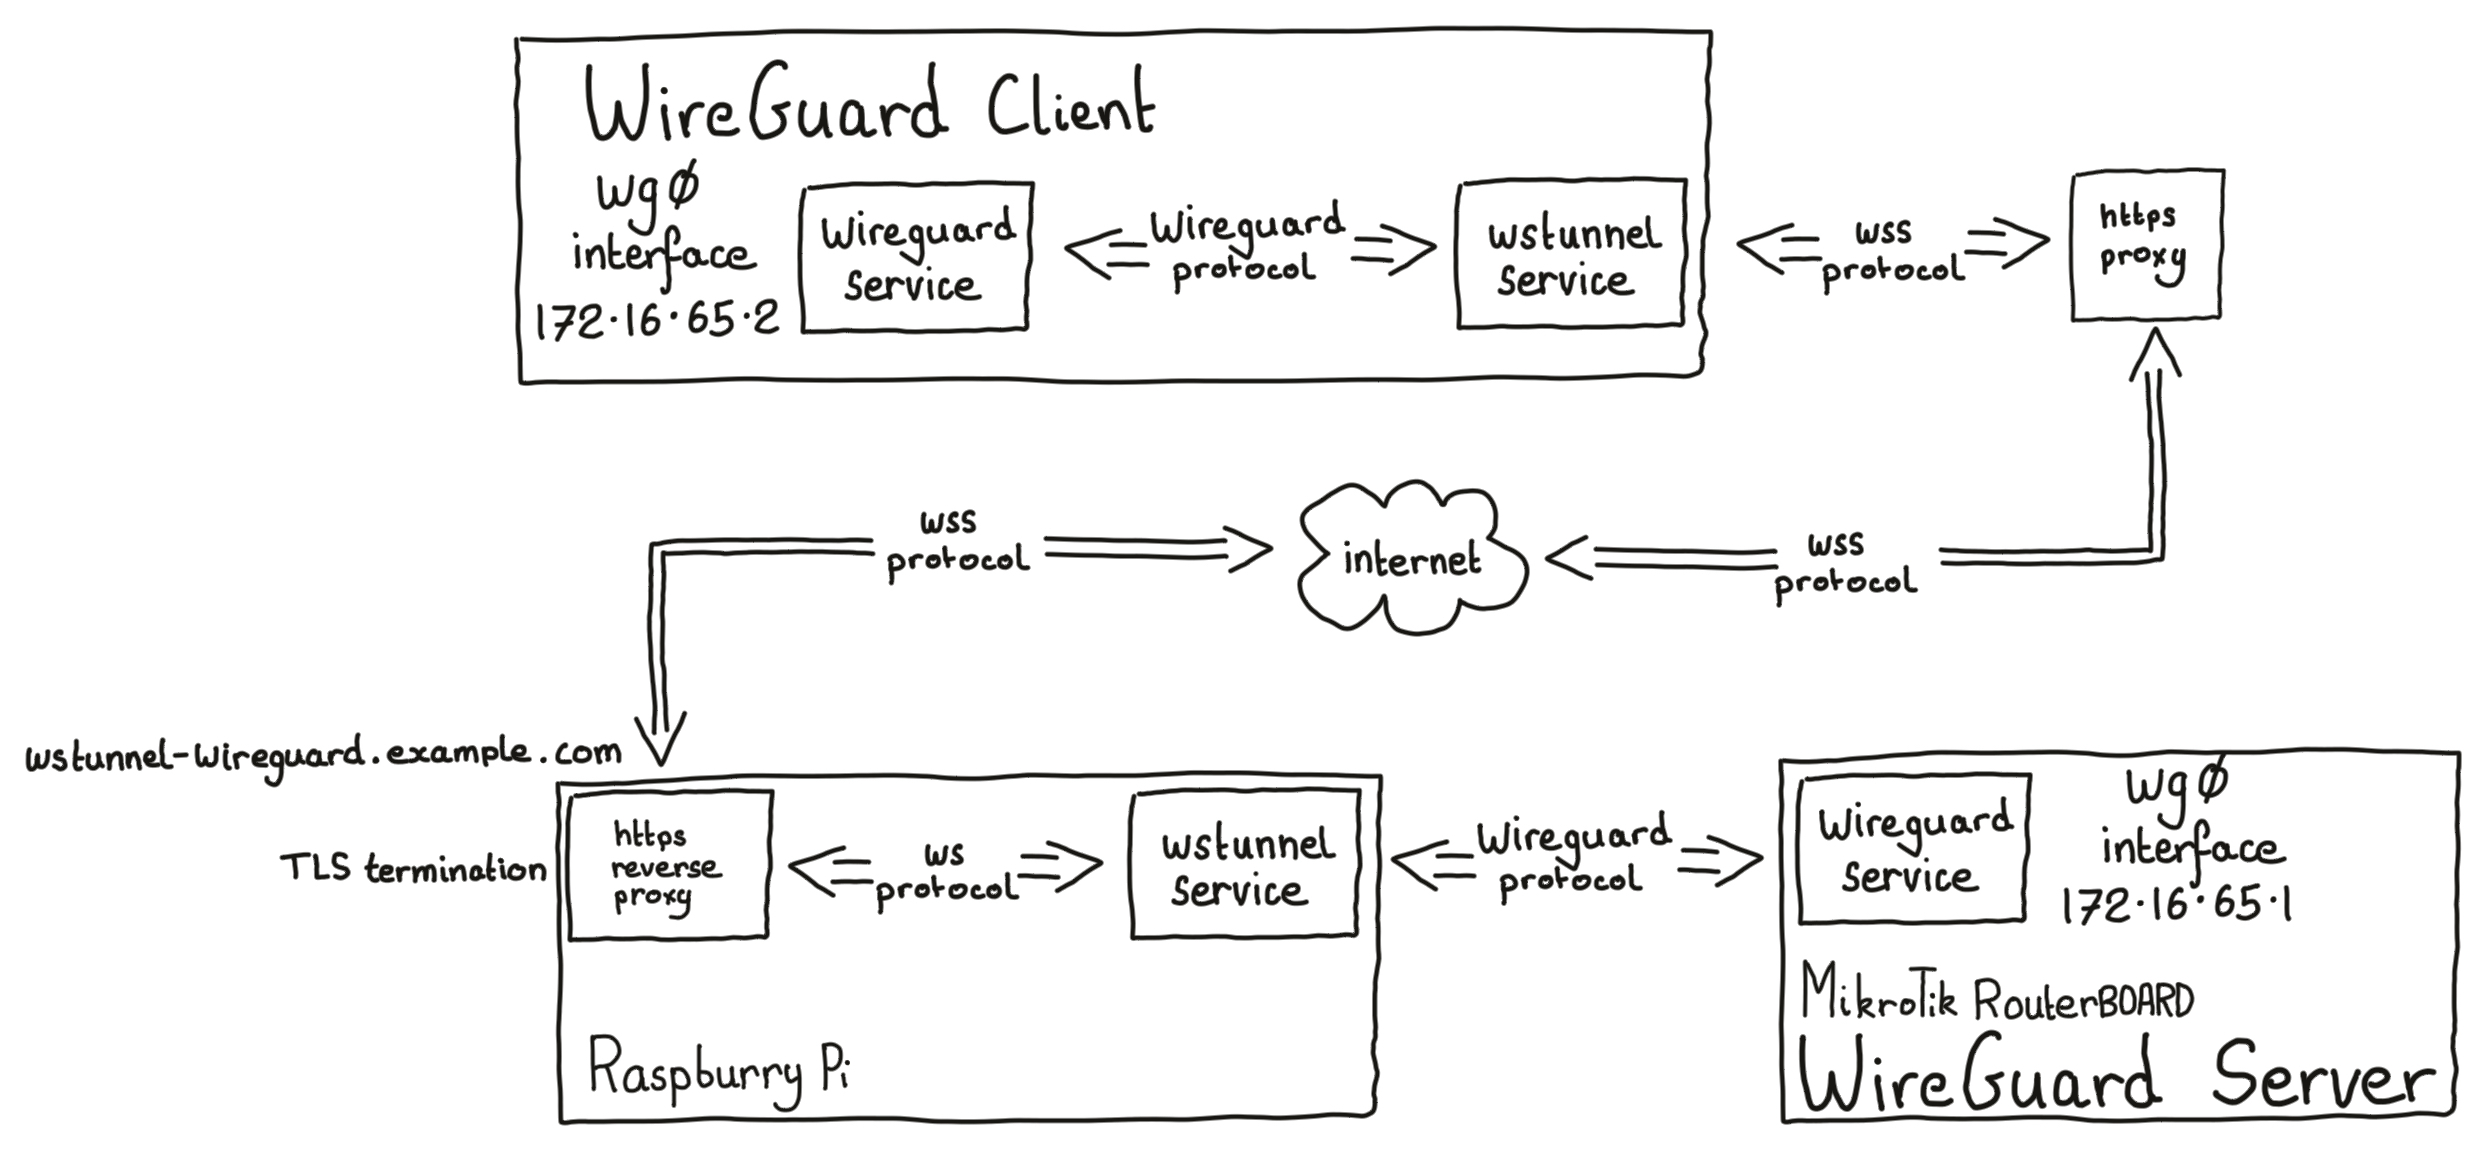 WireGuard Client
wgØ
interface
172.16.65.2
Wireguard
service
Wireguard
protocol
wstunnel
service
wss
protocol
https
proxy
wss
protocol
internet
wss
protocol
wstunnel-wireguard.example.com
TLS termination
https
reverse
proxy
ws
protocol
wstunnel
service
Raspburry Pi
Wireguard
protocol
Wireguard
service
wgØ
interface
172.16.65.1
MikroTik RouterBOARD
WireGuard Server